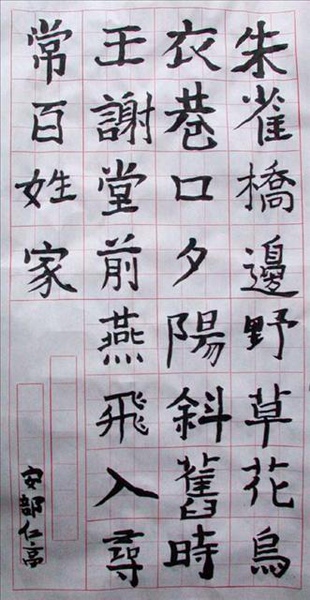 朱雀橋邊野草花烏
衣巷口夕陽斜舊時
王謝堂前燕飛入尋
常百姓家
安部仁高